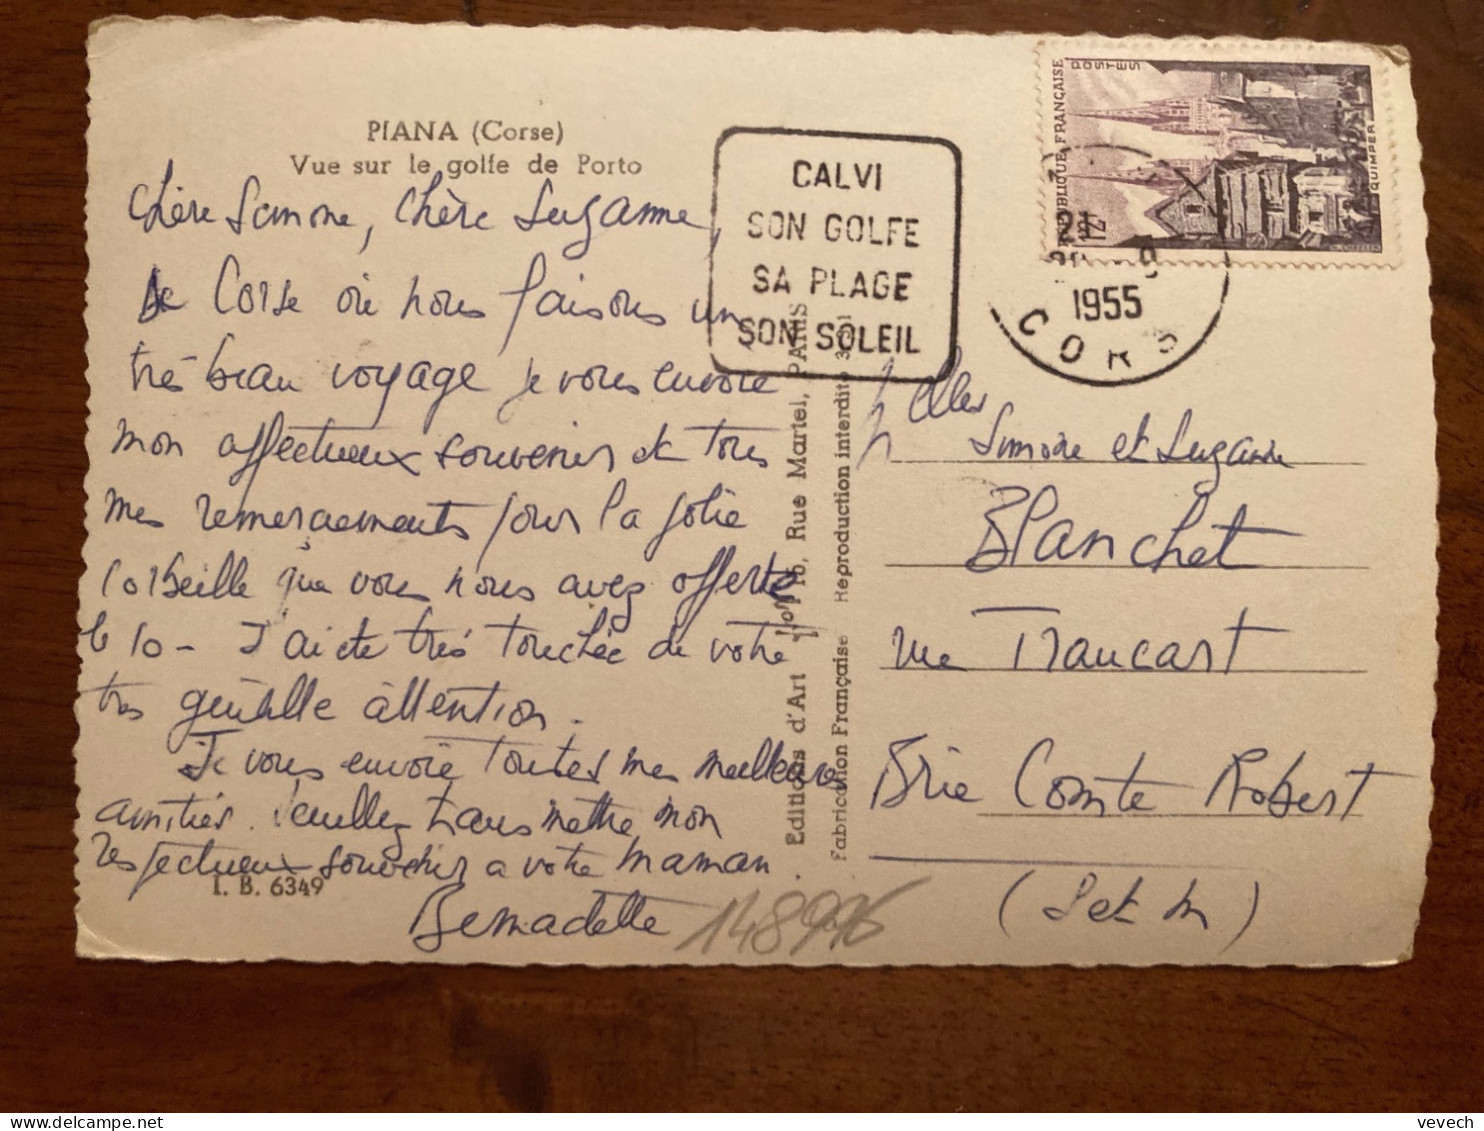 PIANA (Corse)
Vue sur le golfe de Porto
Chère Simone, Chère Suzanne,
De Corse où nous faisons un
très beau voyage je vous envoie
mon affectueux souvenir et tous
mes remerciements pour la jolie
corbeille que vous nous avez offerte
le 10 - J'ai été très touchée de votre
très gentille attention.
Je vous envoie toutes mes meilleures
amitiés. Veuillez transmettre mon
respectueux souvenir a votre maman.
I. B. 6349
Bernadette
148996
CALVI
SON GOLFE
SA PLAGE
SON SOLEIL
Editions d'Art 15, Rue Martel, PARIS
Fabrication Française Reproduction interdite
RÉPUBLIQUE FRANÇAISE
POSTES
QUIMPER
12F
21
1955
CORS
Melles
Simone et Suzanne
Blanchet
rue Traucart
Brie Comte Robert
(S et M)
vevech